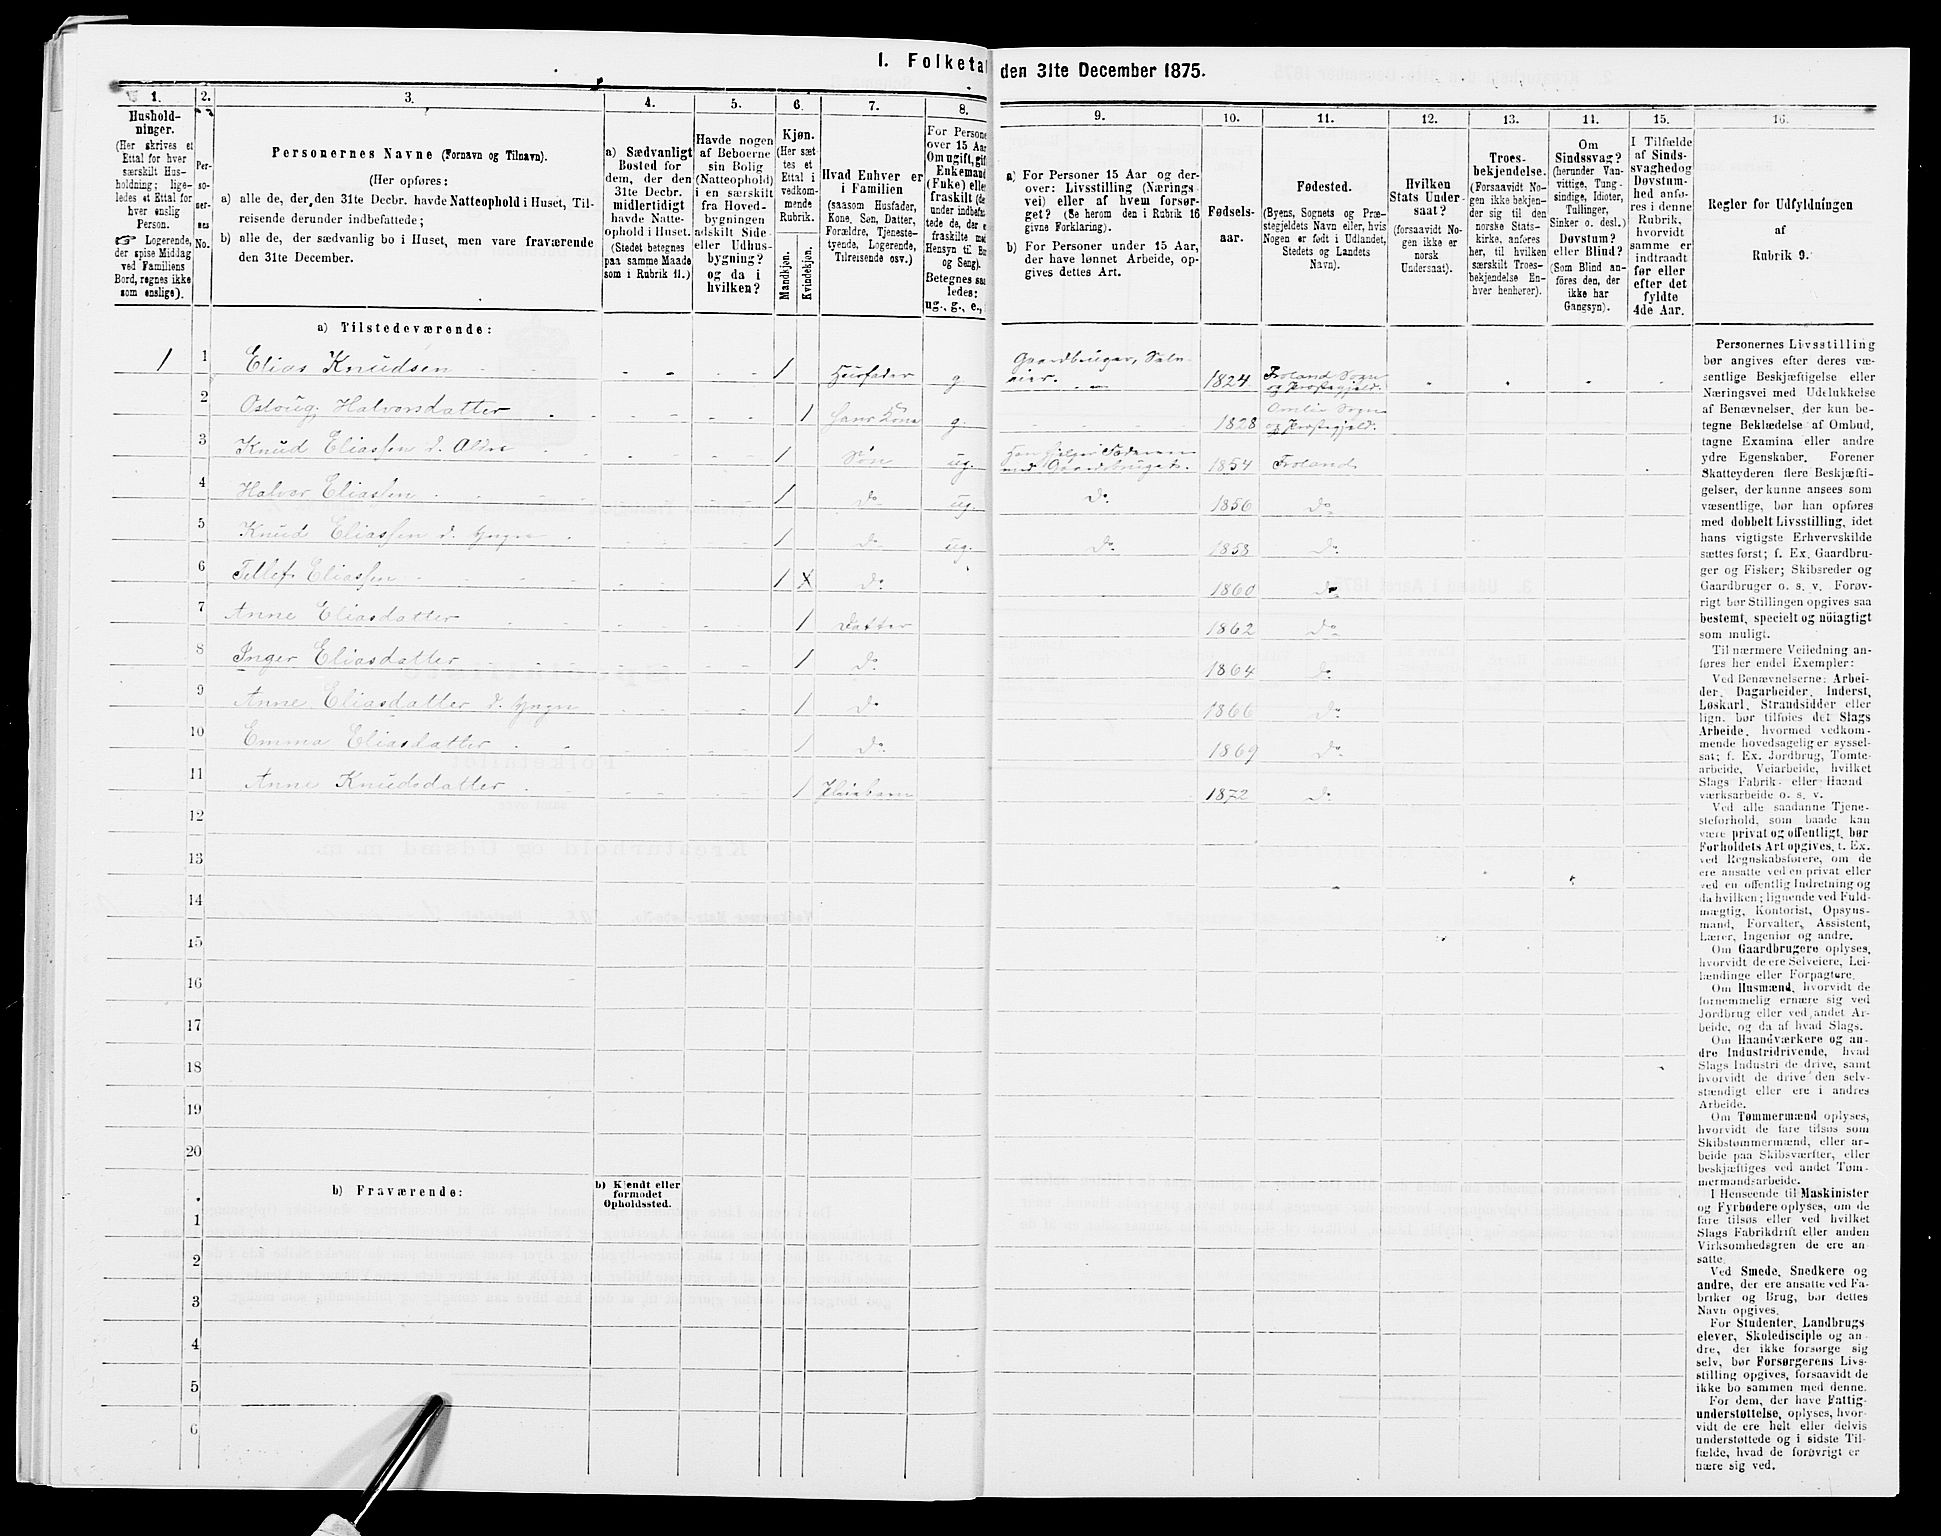 1. Folketal
den 31te December 1875.
1.
2.
3.
4.
5.
6.
7.
8.
9.
10.
11.
12.
13.
14.
15.
16.
Hushold-
ninger.
(Her skrives et
Ettal for hver
særskilt Hus-
holdning; lige-
ledes et Ettal for
hver enslig
Person.
☞ Logerende,
der spise Middag
ved Familiens
Bord, regnes ikke
som enslige).
Per-
so-
ner-
nes
No.
Personernes Navne (Fornavn og Tilnavn).
(Her opføres:
a) alle de, der den 31te Decbr. havde Natteophold i Huset, Til-
reisende derunder indbefattede;
b) alle de, der sædvanlig bo i Huset, men vare fraværende
den 31te December.
a) Sædvanligt
Bosted for
dem, der den
31te Decbr.
midlertidigt
havde Natte-
ophold i Huset.
(Stedet betegnes
paa samme Maade
som i Rubrik 11.)
Havde nogen
af Beboerne
sin Bolig
(Natteophold)
i en særskilt
fra Hoved-
bygningen
adskilt Side-
eller Udhus-
bygning?
og da i
hvilken?
Kjøn.
(Her sæt-
tes et
Ettal i
vedkom-
mende
Rubrik.
Mandkjøn.
Kvindekjøn.
Hvad Enhver er
i Familien
(saasom Husfader,
Kone, Søn, Datter,
Forældre, Tjeneste-
tyende, Logerende,
Tilreisende osv.)
For Persone
over 15 Aar
Om ugift, gift
Enkemand
(Enke) elle
fraskilt (de
under indbefa
tede de, der e
fraskilte me
Hensyn til Bo
og Seng).
Betegnes saa
ledes:
ug., g., e.,
a) For Personer 15 Aar og der-
over: Livsstilling (Nærings-
vei) eller af hvem forsør-
get? (Se herom den i Rubrik 16
givne Forklaring).
b) For Personer under 15 Aar,
der have lønnet Arbeide, op-
gives dettes Art.
Fødsels-
aar.
Fødested.
(Byens, Sognets og Præ-
stegjeldets Navn eller, hvis
Nogen er født i Udlandet,
Stedets og Landets
Navn).
Hvilken
Stats Under-
saat?
(forsaavidt No-
gen ikke er
norsk
Undersaat).
Troes-
bekjendelse.
(Forsaavidt No-
gen ikke bekjen-
der sig til den
norske Stats-
kirke, anføres
her, til hvilken
særskilt Troes-
bekjendelse En-
hver henhører).
Om
Sindssvag?
(herunder Van-
vittige, Tung-
sindige, Idioter,
Tullinger,
Sinker o. desl.)
Døvstum?
eller Blind?
(Som Blind an-
føres den, der
ikke har
Gangsyn).
I Tilfælde
af Sinds-
svaghed og
Døvstum-
hed anfø-
res i denne
Rubrik,
hvorvidt
samme er
indtraadt
før eller
efter det
fyldte
4de Aar.
Regler for Udfyldningen
af
Rubrik 9.
a) Tilstedeværende:
1 1 Elias Knudsen 1 Husfader g Gaardbruger, Selv-
eier. 1824 Froland Sogn
og Præstegjeld.
2 Osloug Halvorsdatter 1 hans Kone g. 1828 Omlie Sogn
og Præstegjeld.
3 Knud Eliassen d. Aldre 1 Søn ug. Han hjelper Faderen
med Gaardsbruget. 1854 Froland
4 Halvor Eliassen 1 Do ug. Do. 1856 Do
5 Knud Eliassen d. Yngre 1 Do ug. Do. 1858 Do
6 Tellef Eliassen 1 Do 1860 Do
7 Anne Eliasdatter 1 Datter 1862 Do
8 Inger Eliasdatter 1 Do 1864 Do
9 Anne Eliasdatter d. Yngre 1 Do 1866 Do
10 Emma Eliasdatter 1 Do 1869 Do
11 Anne Knudsdatter 1 Pleiebarn 1872 Do
12
13
14
15
16
17
18
19
20
b) Fraværende:
b) Kjendt eller
formodet
Opholdssted.
1
2
3
4
5
6
Personernes Livsstilling
bør angives efter deres væ-
sentlige Beskjæftigelse eller
Næringsvei med Udelukkelse
af Benævnelser, der kun be-
tegne Beklædelse af Ombud,
tagne Examina eller andre
ydre Egenskaber. Forener
Skatteyderen flere Beskjæfti-
gelser, der kunne ansees som
væsentlige, bør han opføres
med dobbelt Livsstilling, idet
hans vigtigste Erhvervskilde
sættes først; f. Ex. Gaardbru-
ger og Fisker; Skibsreder og
Gaardbruger o. s. v. Forøv-
rigt bør Stillingen opgives saa
bestemt, specielt og nøiagtigt
som muligt.
Til nærmere Veiledning an-
føres her endel Exempler:
Ved Benævnelserne: Arbei-
der, Dagarbeider, Inderst,
Løskarl, Strandsidder eller
lign. bør tilføies det Slags
Arbeide, hvormed vedkom-
mende hovedsagelig er syssel-
sat; f. Ex. Jordbrug, Tomte-
arbeide, Veiarbeide, hvilket
Slags Fabrik- eller Haand-
værksarbeide o. s. v.
Ved alle saadanne Tjene-
steforhold, som baade kan
være privat og offentligt, bør
Forholdets Art opgives, t. Ex.
ved Regnskabsførere, om de
ere ansatte ved en privat eller
ved en offentlig Indretning og
da hvilken; lignende ved Fuld-
mægtig, Kontorist, Opsyns-
mand, Forvalter, Assistent,
Lærer, Ingeniør og andre.
Om Gaardbrugere oplyses,
hvorvidt de ere Selveiere, Lei-
lændinge eller Forpagtere.
Om Husmænd, hvorvidt de
fornemmelig ernære sig ved
Jordbrug eller ved andet Ar-
beide, og da af hvad Slags.
Om Haandværkere og an-
dre Industridrivende, hvad
Slags Industri de drive, samt
hvorvidt de drive den selv-
stændigt eller ere i andres
Arbeide.
Om Tømmermænd oplyses,
hvorvidt de fare tilsøs som
Skibstømmermænd, eller ar-
beide paa Skibsværfter, eller
beskjæftiges ved andet Tøm-
mermandsarbeide.
I Henseende til Maskinister
og Fyrbødere oplyses, om de
fare tilsøs eller ved hvilket
Slags Fabrikdrift eller anden
Virksomhedsgren de ere an-
satte.
Ved Smede, Snedkere og
andre, der ere ansatte ved Fa-
briker og Brug, bør dettes
Navn opgives.
For Studenter, Landbrugs-
elever, Skoledisciple og an-
dre, der ikke forsørge sig
selv, bør Forsørgerens Livs-
stilling opgives, forsaavidt de
ikke bo sammen med denne.
For dem, der have Fattig-
understøttelse, oplyses, hvor-
vidt de ere helt eller delvis
understøttede og i sidste Til-
fælde, hvad de forøvrigt er-
nære sig ved.